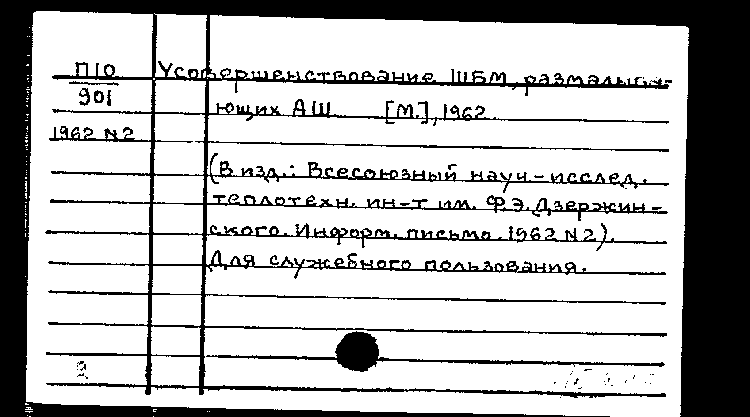 П10
901
1962 N2
Усовершенствование ШБМ, размалыва-
ющих АШ [М.], 1962
(В изд.: Всесоюзный науч-исслед.
теплотехн. ин-т им. Ф.Э.Дзержин-
ского. Информ. письмо. 1962 N2).
Для служебного пользования.
2